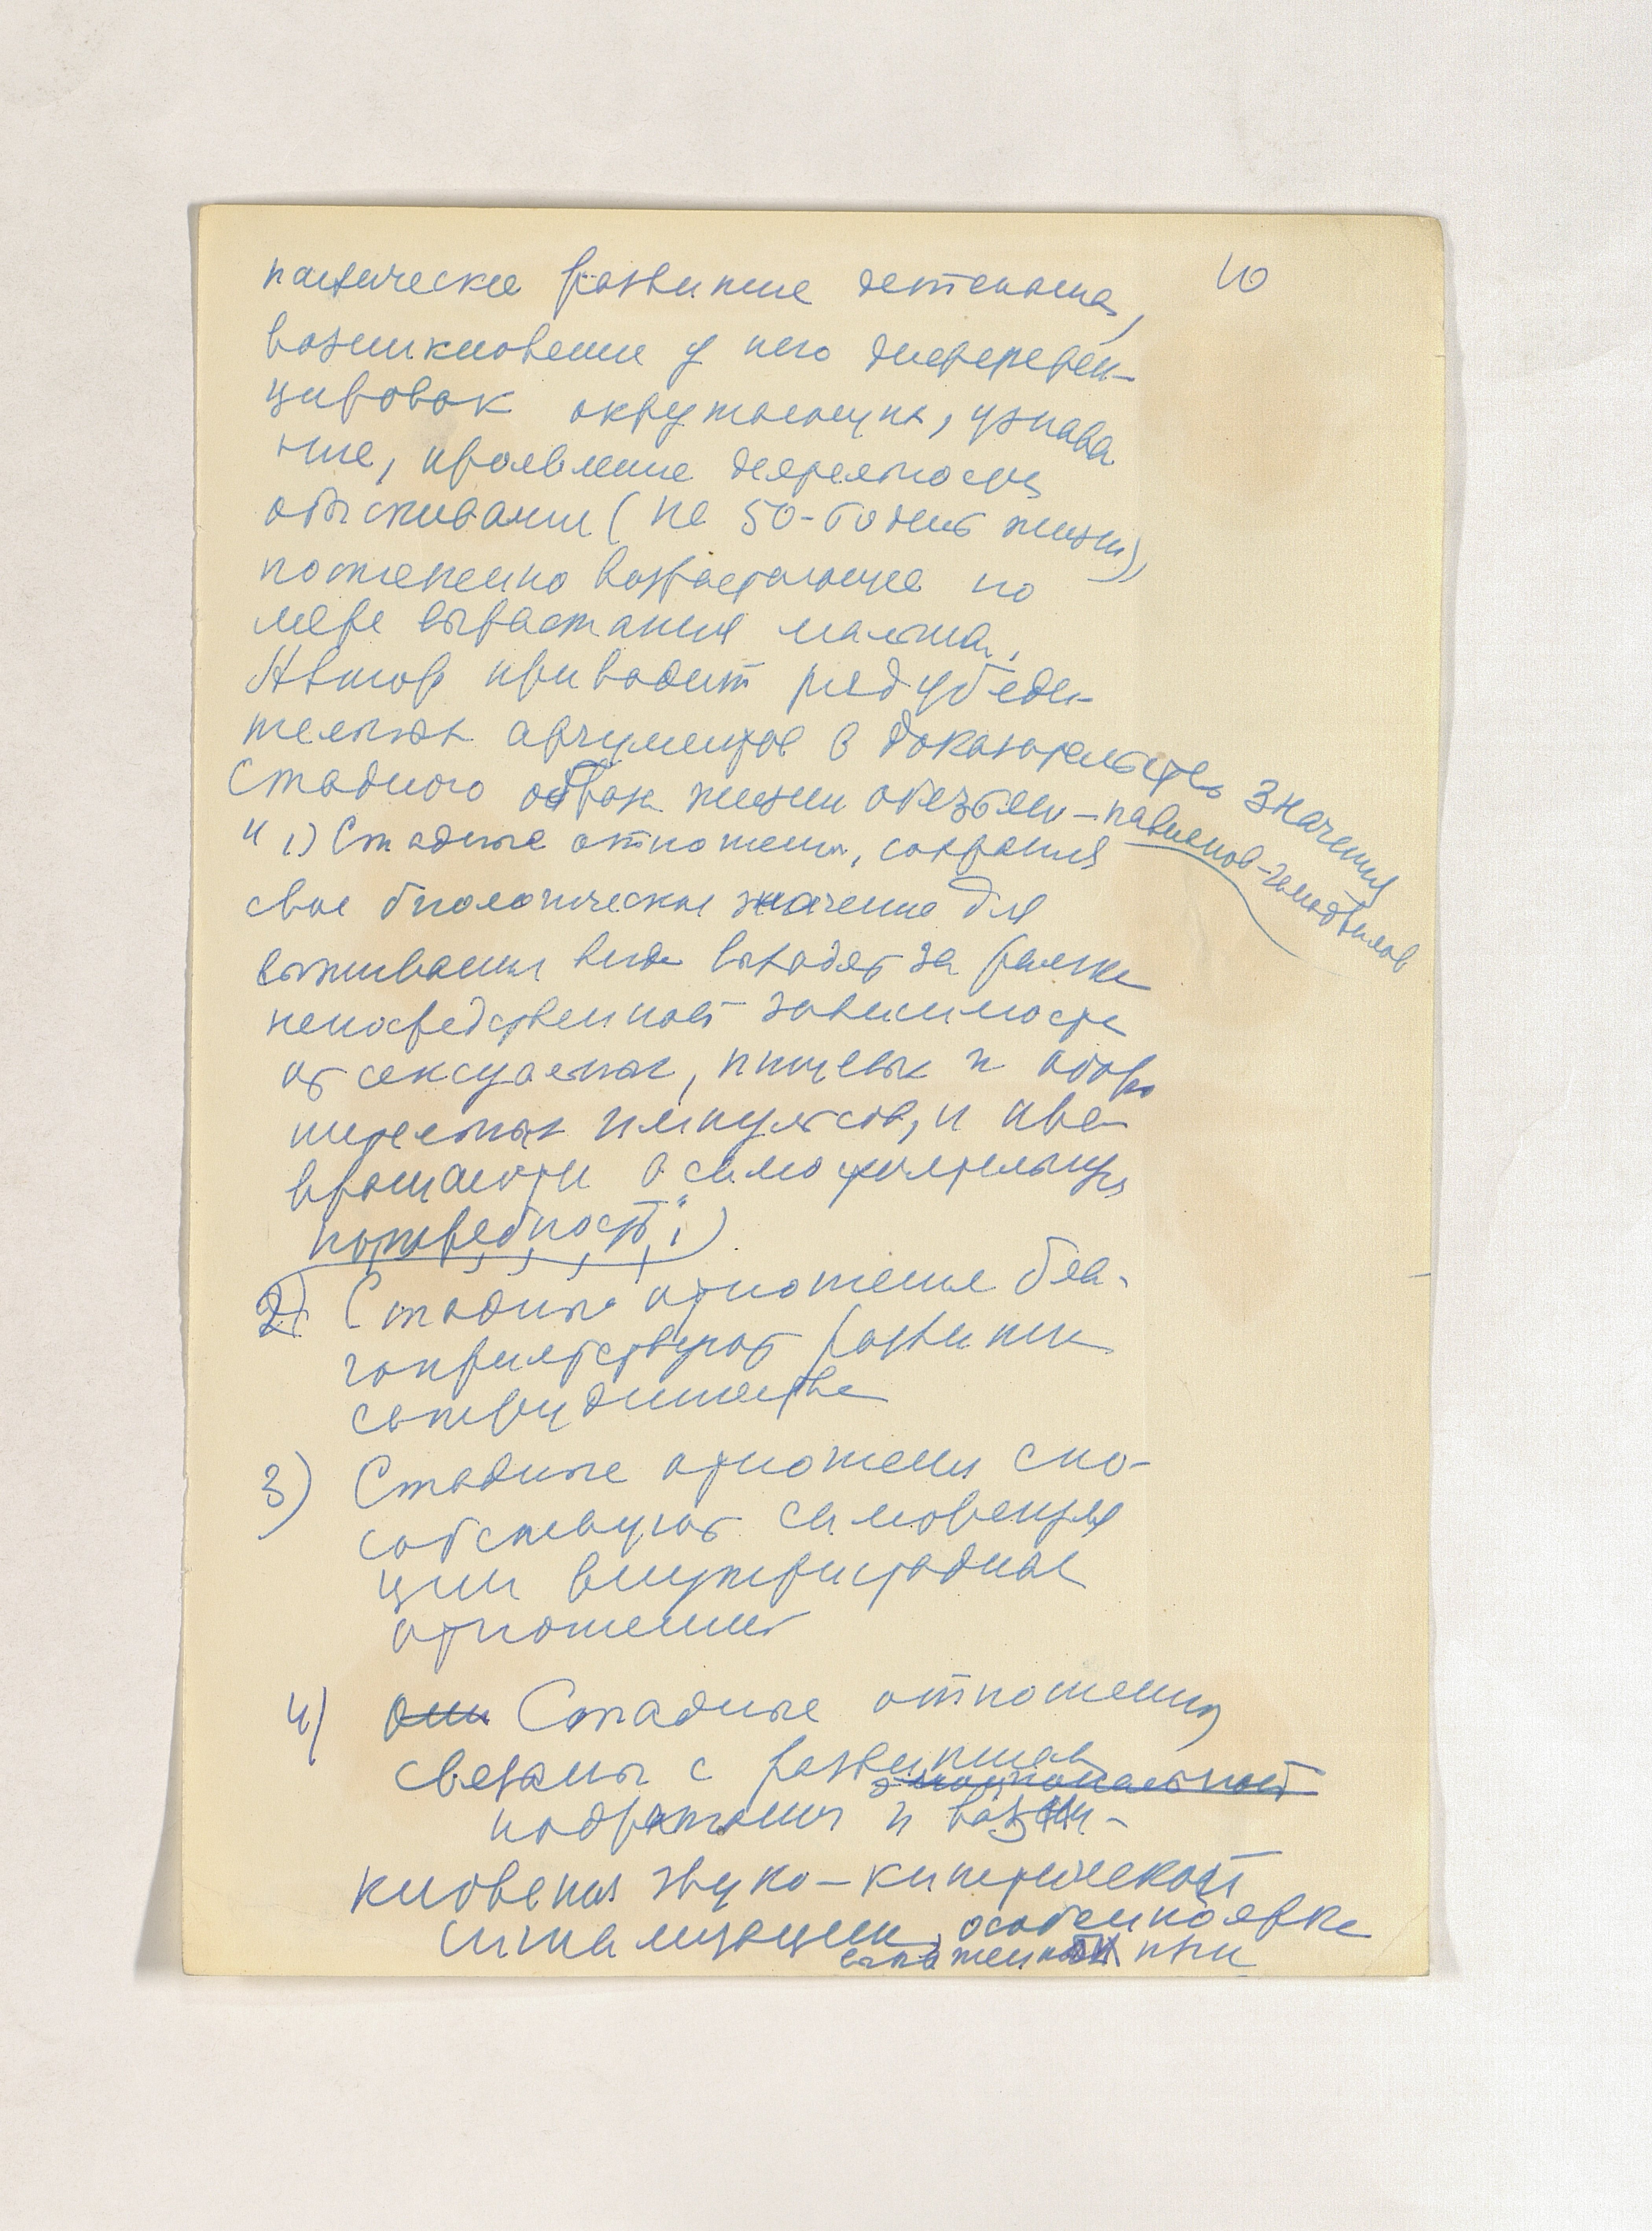 10
психическое развитие детеныша,
возникновение у него дифферен-
цировок окружающих, узнава
ние, проявление деятельности
обыскивания (на 50-60 день жизни)
постепенно возрастающее по
мере вырастания малыша.
Автор приводит ряд убеди-
тельных аргументов в доказательство значения
стадного образа жизни обезьян-павианов-гамадрилов
" 1) Стадные отношения, сохраняя
свое биологическое значение для
выживания вида выходят за рамки
непосредственной зависимости
от сексуальных, пищевых и оборо
нительных импульсов, и пре-
вращаются в самостоятельную
потребность";
2) Стадные отношения бла-
гоприятствуют развитию
сотрудничества
3) Стадные отношения спо-
собствуют
ции внутристадных
отношений
4) Они Стадные отношения
связаны с развитием
эмоциональной
подражания и возни-
кновения звуко-кинетической
сигнализации, особенно ярко
выраженной при